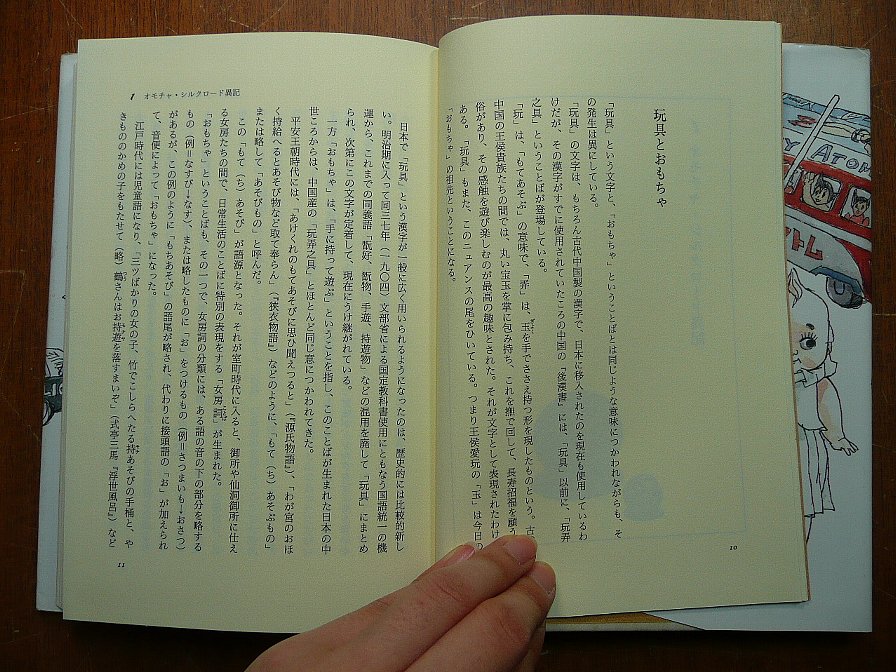 玩具とおもちゃ
「玩具」という文字と、「おもちゃ」ということばとは同じような意味につかわれながらも、そ
の発生は異にしている。
「玩具」の文字は、もちろん古代中国製の漢字で、日本に移入されたのを現在も使用しているわ
けだが、その漢字がすでに使用されていたころの中国の『後漢書』には、「玩具」以前に、「玩弄
之具」ということばが登場している。
「玩」は、「もてあそぶ」の意味で、「弄」は、玉を手でささえ持つ形を現したものという。古
中国の王侯貴族たちの間では、丸い宝玉を掌に包み持ち、これを撫で回して、長寿招福を願う
俗があり、その感触を遊び楽しむのが最高の趣味とされた。それが文字として表現されたわけ
ある。「玩具」もまた、このニュアンスの尾をひいている。つまり王侯愛玩の「玉」は今日の
「おもちゃ」の祖元ということになる。
10
1 オモチャ・シルクロード異記
日本で「玩具」という漢字が一般に広く用いられるようになったのは、歴史的には比較的新し
い。明治期に入って同三七年（一九〇四）文部省による国定教科書使用にともなう国語統一の機
運から、これまでの同義語「翫好、翫物、手遊、持遊物」などの混用を廃して「玩具」にまとめ
られ、次第にこの文字が定着して、現在にうけ継がれている。
一方「おもちゃ」は、「手に持って遊ぶ」ということを指し、このことばが生まれた日本の中
世ころからは、中国産の「玩弄之具」とほとんど同じ意につかわれてきた。
平安王朝時代には、「あけくれのもてあそびに思ひ聞えつると」（『源氏物語』）、「わが宮のおほ
く持給へるとあそび物など取て奉らん」（『狭衣物語』）などのように、「もて（ち）あそぶもの」
または略して「あそびもの」と呼んだ。
この「もて（ち）あそび」が語源となった。それが室町時代に入ると、御所や仙洞御所に仕え
る女房たちの間で、日常生活のことばに特別の表現をする「女房詞」が生まれた。
「おもちゃ」ということばも、その一つで、女房詞の分類には、ある語の音の下の部分を略する
もの（例＝なすび→なす）、または略したものに「お」をつけるもの（例＝さつまいも→おさつ）
があるが、この例のように「もちあそび」の語尾が略され、代わりに接頭語の「お」が加えられ
て、音便によって「おもちゃ」になった。
江戸時代には児童語になり、「三ツばかりの女の子、竹でこしらへたる持あそびの手桶と、や
きもののかめの子をもたせて（略）鶴さんはお持遊を落すまいぞ」（式亭三馬『浮世風呂』）など
11
Y ATOM
トム